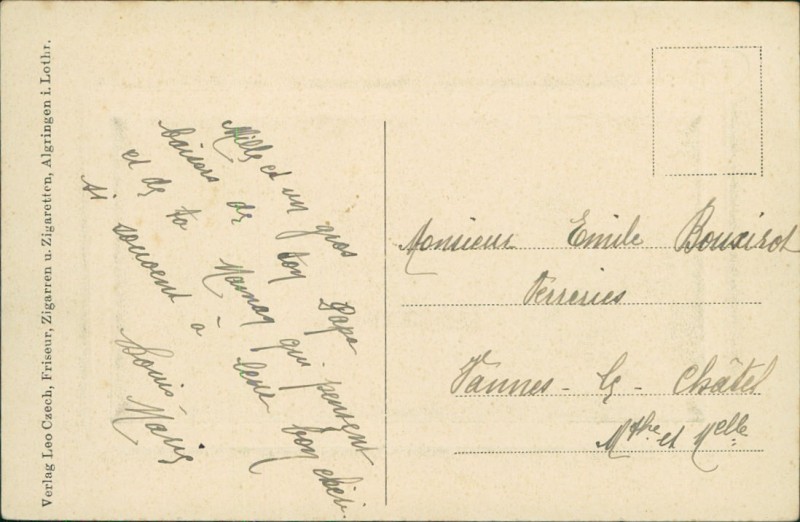 Verlag Leo Czech, Friseur, Zigarren u. Zigaretten, Algringen i. Lothr.
Mille et un gros
baisers de ton Papa
et de ta Maman qui pensent
si souvent à leur bon chéri.
Louis - Marie
Monsieur Emile Bouxirot
Verreries
Vannes - le - Châtel
Mthe et Melle